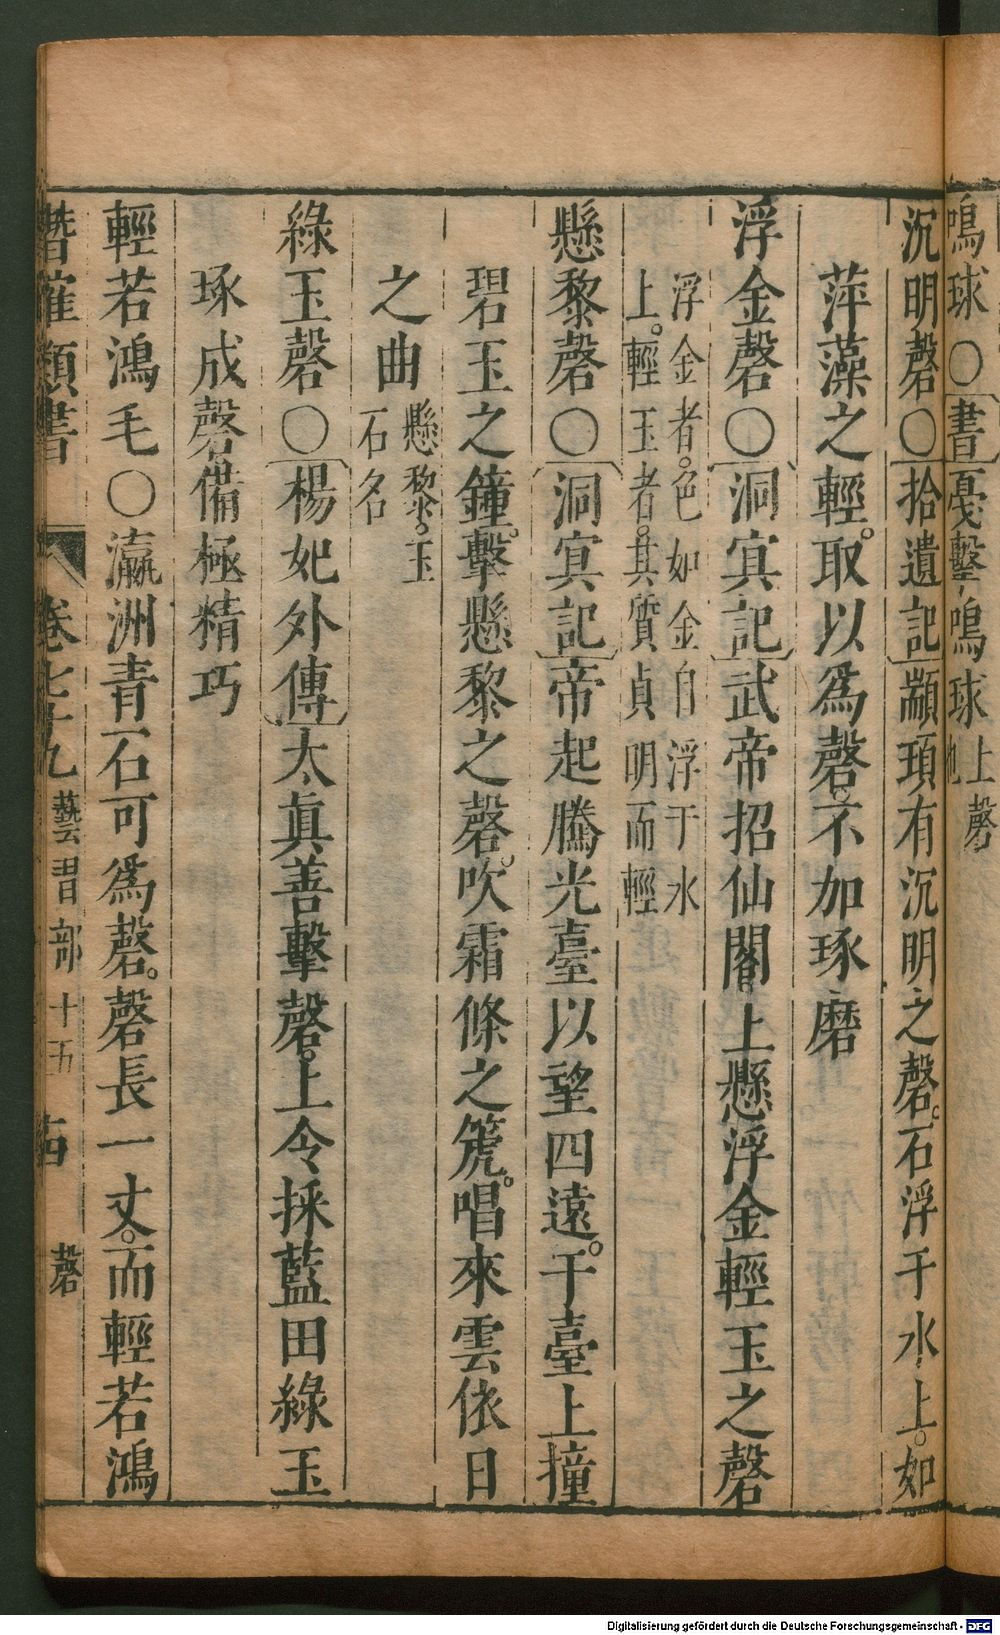 鳴球○書戞擊鳴球上磬也
沉明磬○拾遺記顓頊有沉明之磬。石浮于水上。如
萍藻之輕。取以爲磬。不加琢磨
浮金磬○洞㝠記武帝招仙閣上懸浮金輕玉之磬
浮金者。色如金自浮于水
上。輕玉者。其質貞明而輕
懸黎磬○洞㝠記帝起騰光臺以望四遠。于臺上撞
碧玉之鐘。擊懸黎之磬。吹霜條之篪。唱來雲依日
之曲 懸黎。玉
石名
綠玉磬○楊妃外傳太真善擊磬。上令採藍田綠玉
琢成磬備極精巧
輕若鴻毛○瀛洲青石可爲磬。磬長一丈。而輕若鴻
類書 卷七十九 藝習部十五 磬
Digitalisierung gefördert durch die Deutsche Forschungsgemeinschaft - DFG